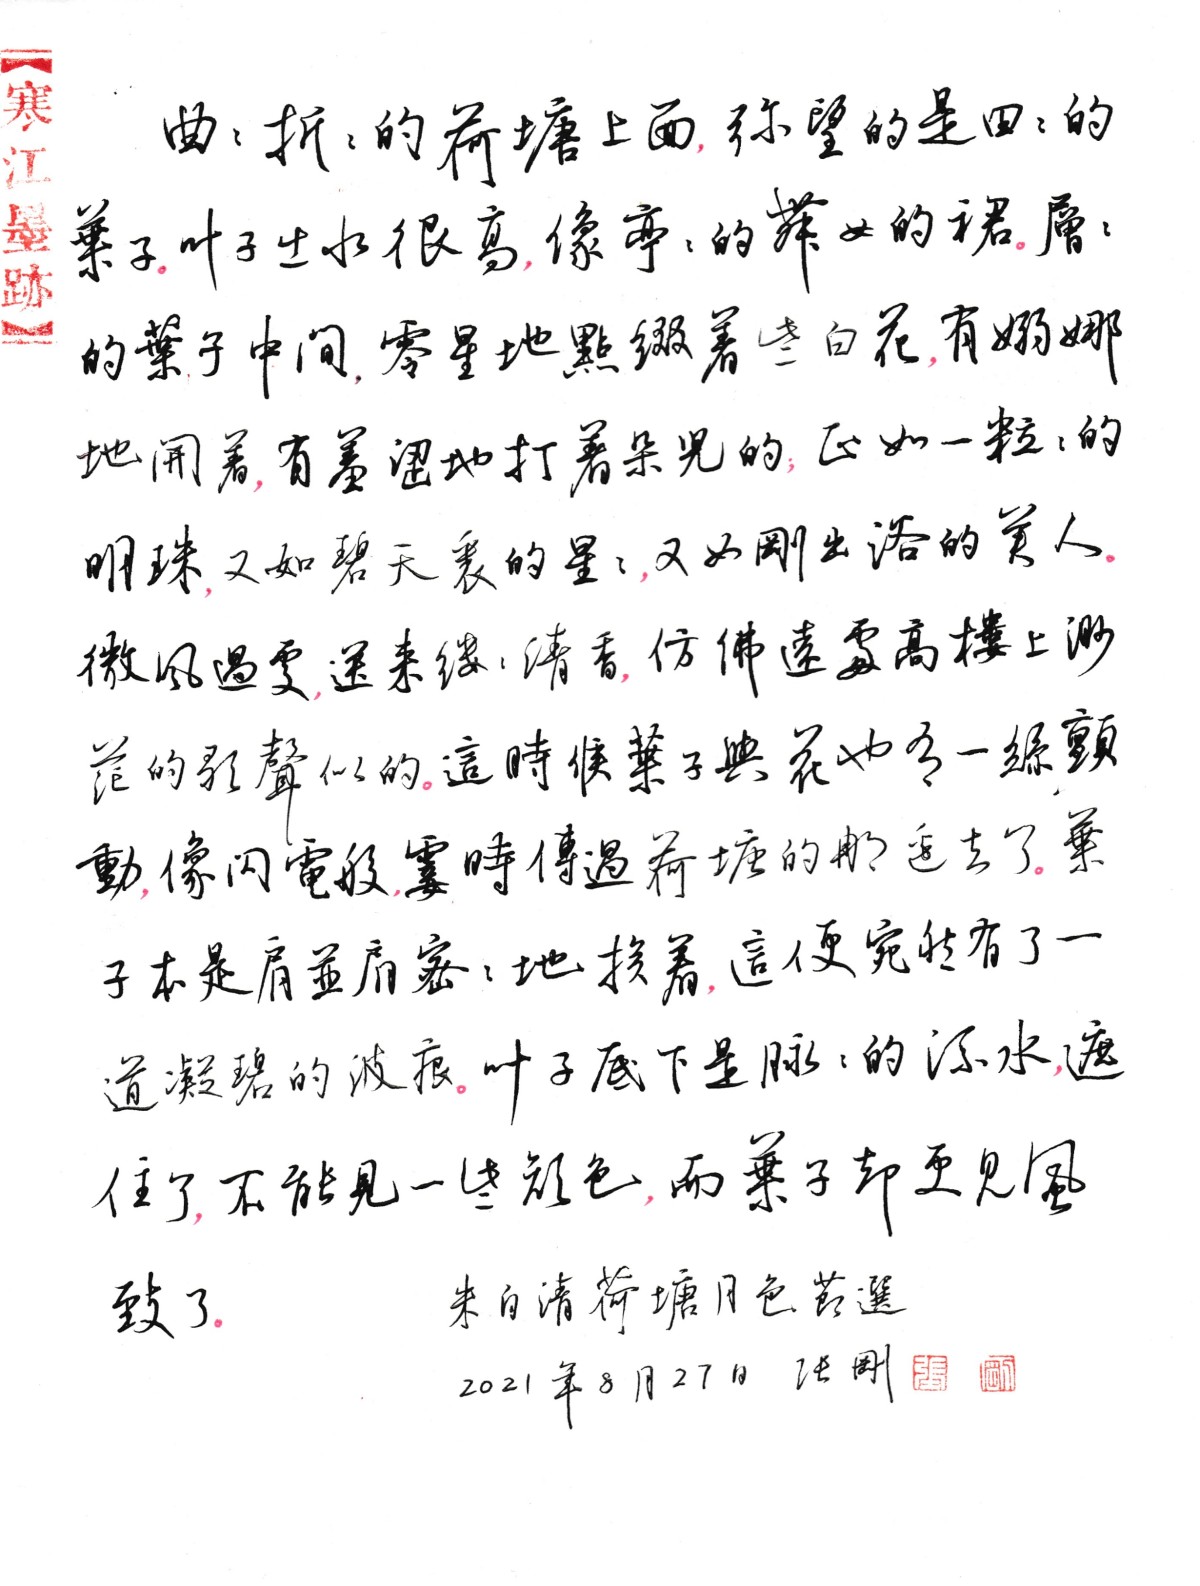 【寒江墨跡】
曲：折：的荷塘上面，弥望的是田：的
葉子。叶子出水很高，像亭：的舞女的裙。層：
的葉子中间，零星地點缀着些白花，有嫋娜
地開着，有羞澀地打着朵児的；正如一粒：的
明珠，又如碧天裏的星：，又如剛出浴的美人。
微风過處，送来缕：清香，仿佛遠處高樓上渺
茫的歌聲似的。這時候葉子與花也有一絲顫
動，像闪電般，霎時傳過荷塘的那邊去了。葉
子本是肩並肩密：地挨着，這便宛然有了一
道凝碧的波痕。叶子底下是脉：的流水，遮
住了，不能見一些颜色，而葉子却更見風
致了。
朱自清荷塘月色節選
2021年8月27日 张剛
張 剛